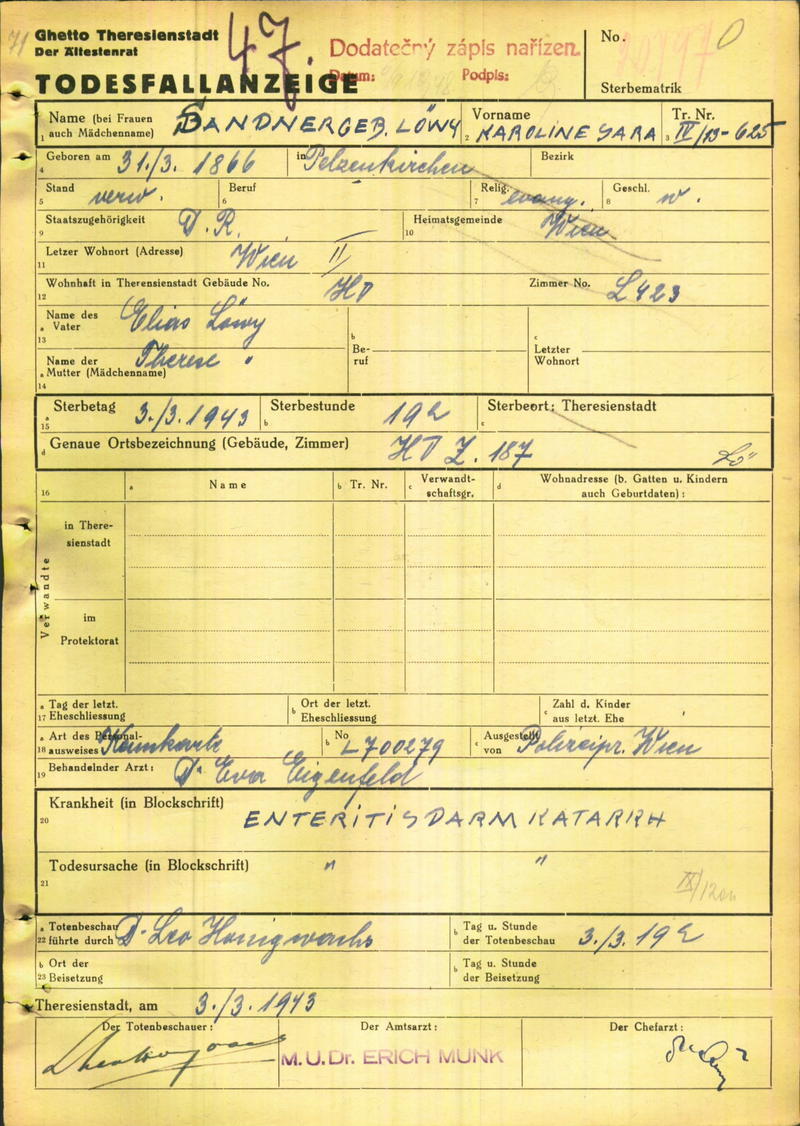 71 Ghetto Theresienstadt
Der Ältestenrat
47.
Dodatečný zápis nařízen.
Datum: Podpis:
No.
Sterbematrik
TODESFALLANZEIGE
1 Name (bei Frauen auch Mädchenname) SANDNER GEB. LÖWY 2 Vorname KAROLINE SARA 3 Tr. Nr. IV/13-625
4 Geboren am 31./3. 1866 in Petzenkirchen Bezirk
5 Stand verw. 6 Beruf — 7 Relig. evang. 8 Geschl. w.
9 Staatszugehörigkeit D.R. 10 Heimatsgemeinde Wien
11 Letzer Wohnort (Adresse) Wien II/
12 Wohnhaft in Theresienstadt Gebäude No. HV Zimmer No. L423
13 a Name des Vater Elias Löwy b Beruf c Letzter Wohnort
14 a Name der Mutter (Mädchenname) Therese "
15 a Sterbetag 3./3. 1943 b Sterbestunde 19h c Sterbeort: Theresienstadt
d Genaue Ortsbezeichnung (Gebäude, Zimmer) HV Z. 187 Lö"
16 a Name b Tr. Nr. c Verwandt-schaftsgr. d Wohnadresse (b. Gatten u. Kindern auch Geburtdaten):
Verwandte
in There-sienstadt
im Protektorat
17 a Tag der letzt. Eheschliessung b Ort der letzt. Eheschliessung c Zahl d. Kinder aus letzt. Ehe
18 a Art des Personal-ausweises Kennkarte b No L700279 c Ausgestellt von Polizeipr. Wien
19 Behandelnder Arzt: Dr Eva Eigenfeld
20 Krankheit (in Blockschrift) ENTERITIS DARMKATARRH
21 Todesursache (in Blockschrift) " "
22 a Totenbeschau führte durch Dr Leo Honigwachs b Tag u. Stunde der Totenbeschau 3./3. 19h
23 b Ort der Beisetzung b Tag u. Stunde der Beisetzung
Theresienstadt, am 3./3. 1943
Der Totenbeschauer: Der Amtsarzt: Der Chefarzt:
M.U.Dr. ERICH MUNK